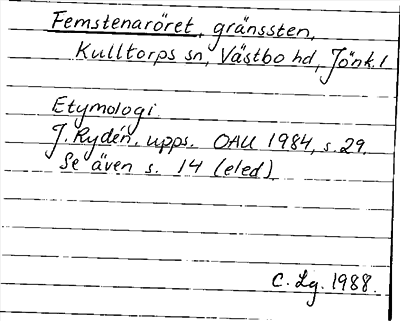 Femstenaröret, gränssten,
Kulltorps sn, Västbo hd, Jönk. l
Etymologi
J. Rydén, upps. OAU 1984, s. 29.
Se även s. 14 (eled)
C. Lg. 1988.